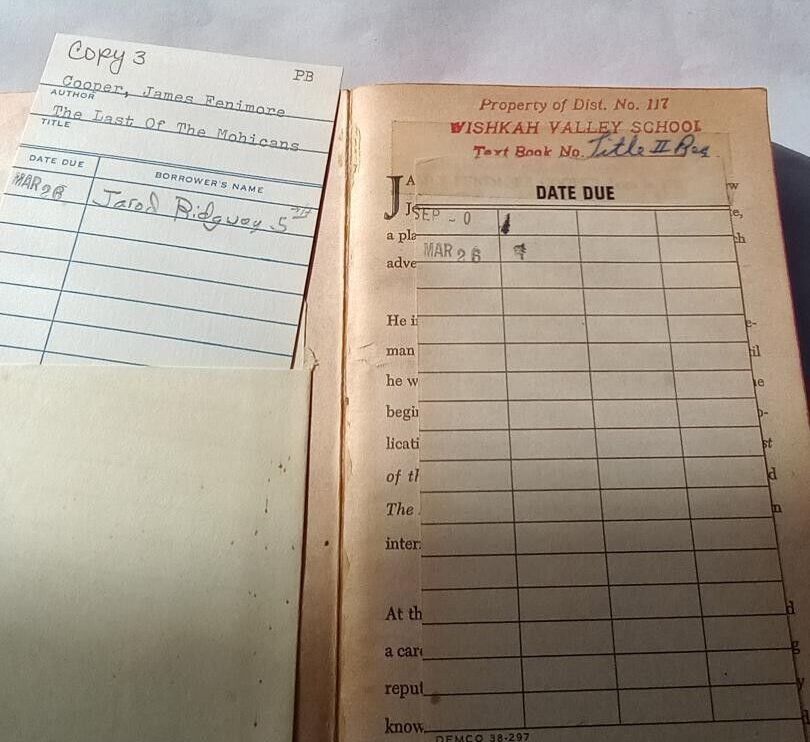 Copy 3
PB
Cooper, James Fenimore
AUTHOR
The Last Of The Mohicans
TITLE
DATE DUE
BORROWER'S NAME
MAR 26
Jarod Ridgway 5th
Property of Dist. No. 117
WISHKAH VALLEY SCHOOL
Text Book No. Title II Reg
DATE DUE
SEP - 0
MAR 26
a pla
adve
He i
man
he w
begi
licati
of th
The
inter
At th
a car
reput
know
DEMCO 38-297